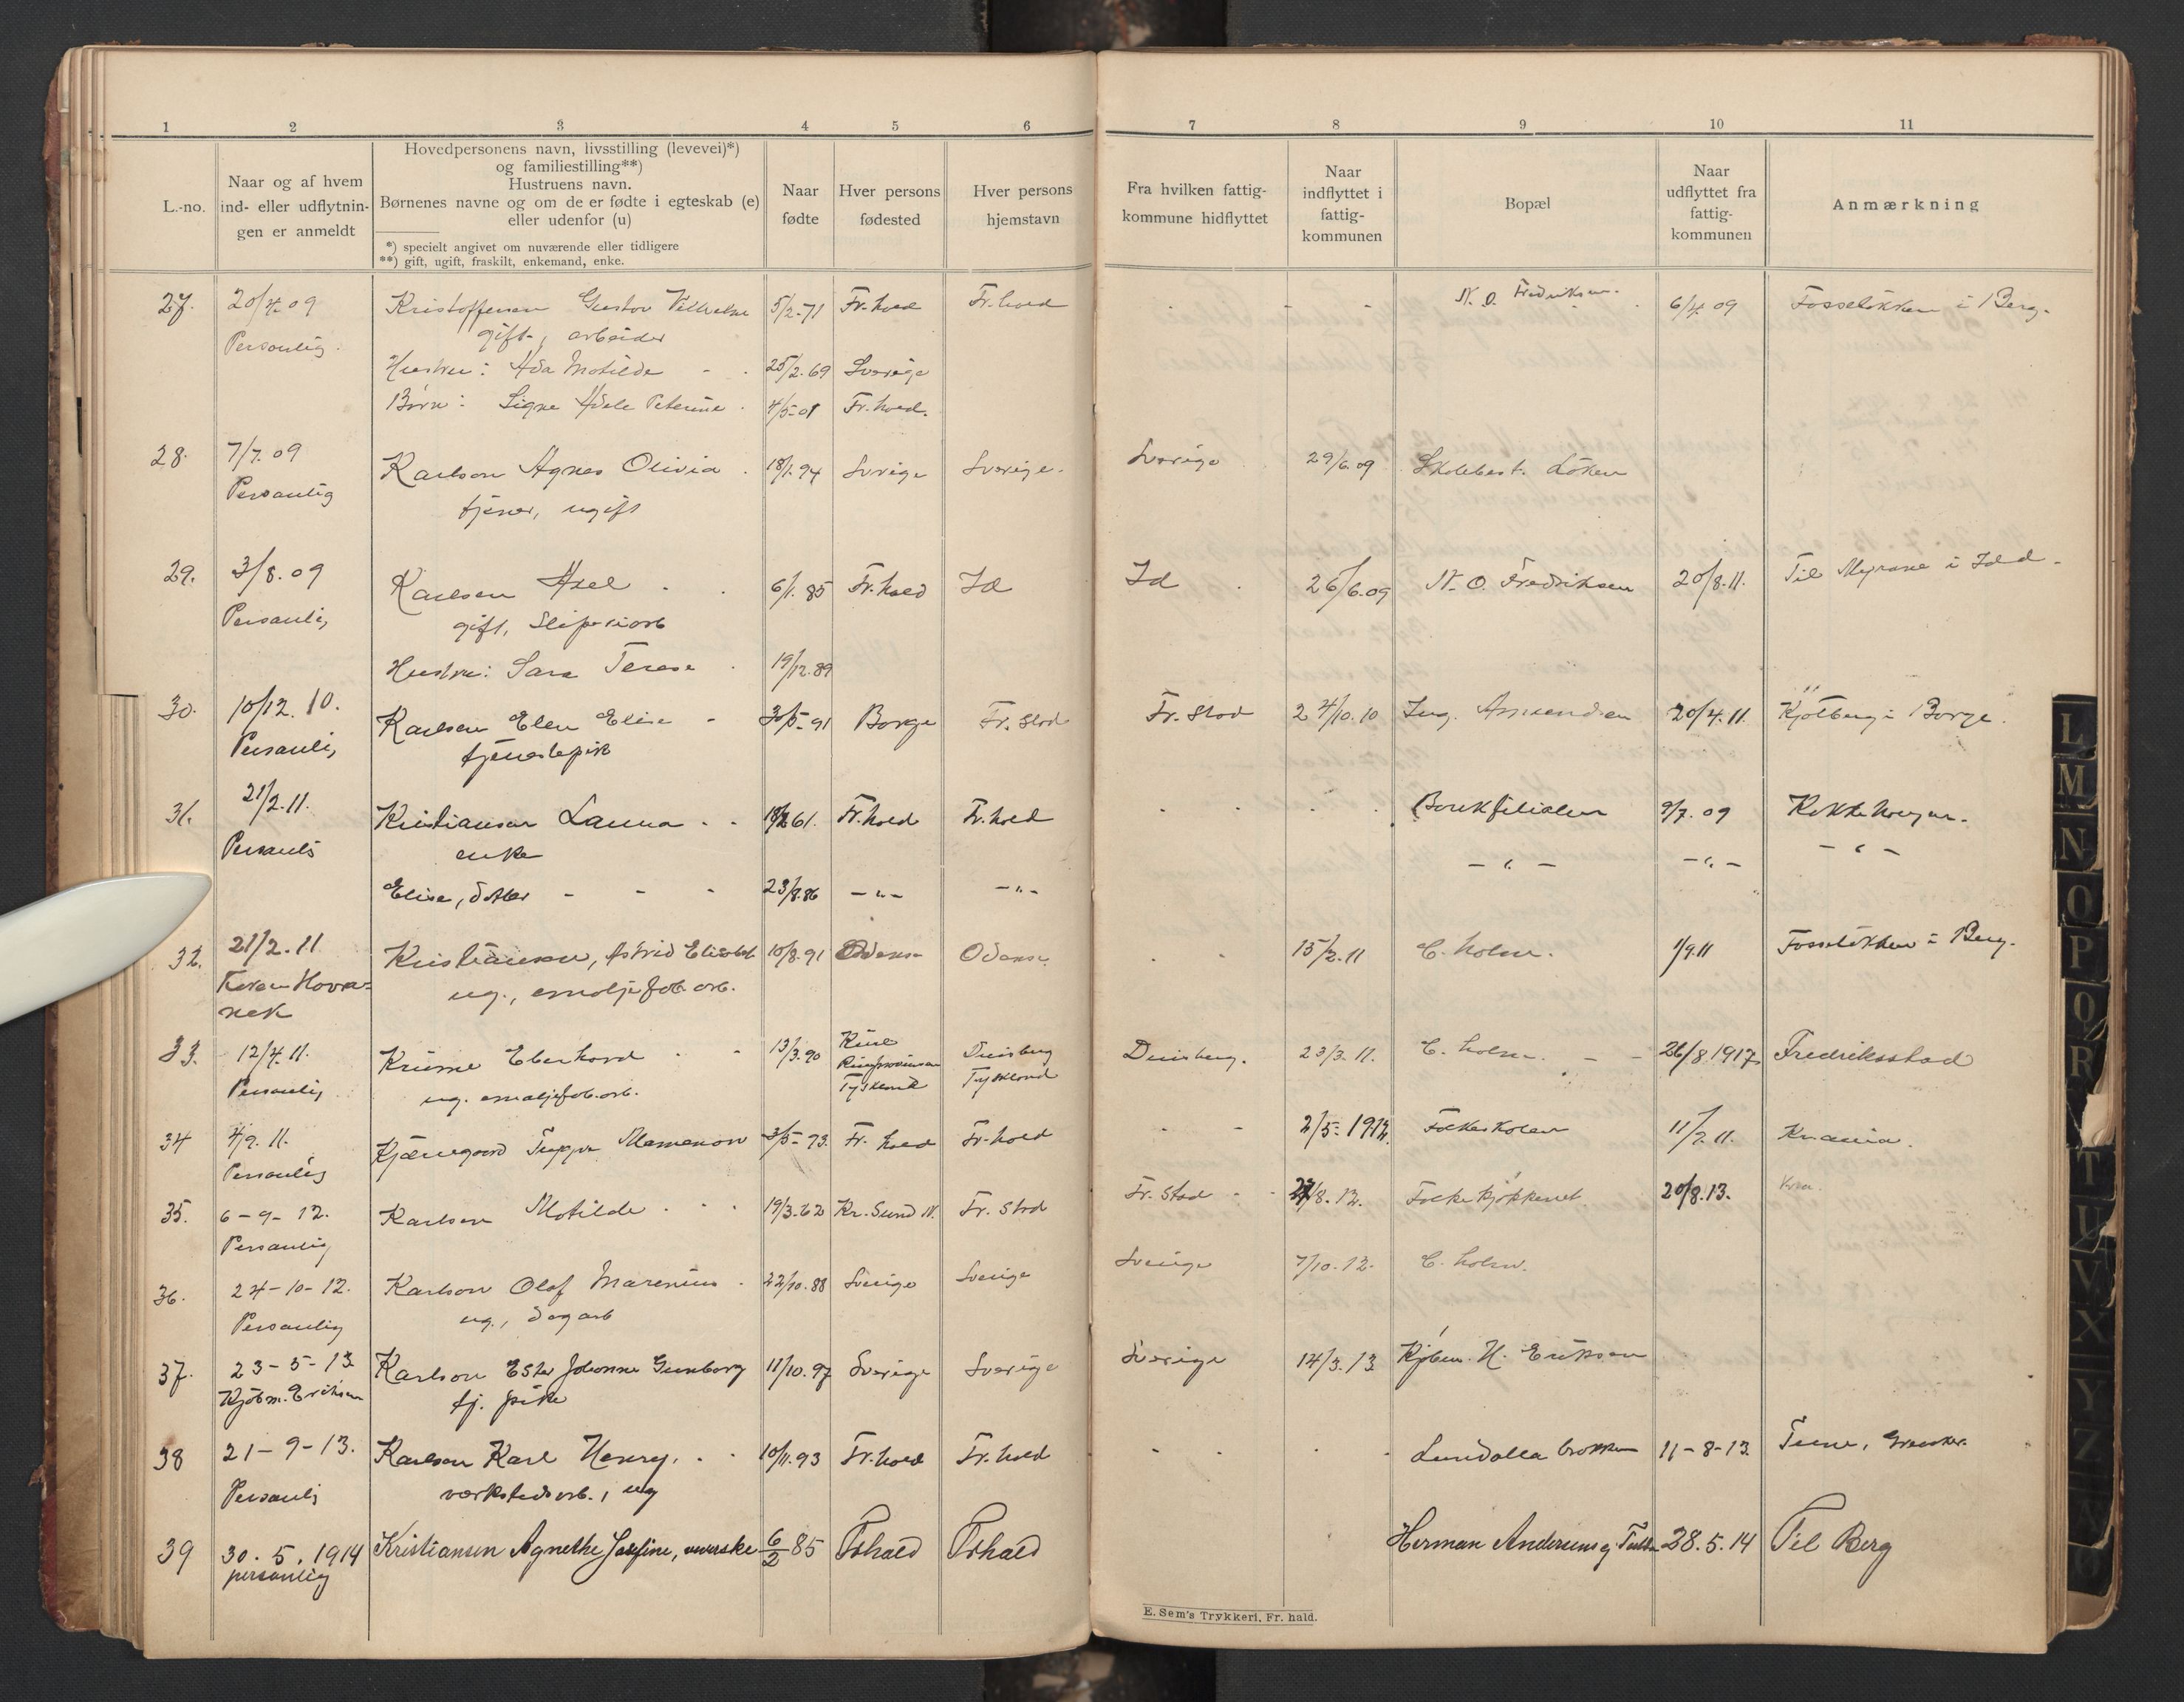 1 2 3 4 5 6 7 8 9 10 11
L.-no.
Naar og af hvem
ind- eller udflytnin-
gen er anmeldt
Hovedpersonens navn, livsstilling (levevei)*)
og familiestilling**)
Hustruens navn.
Børnenes navne og om de er fødte i egteskab (e)
eller udenfor (u)
*) specielt angivet om nuværende eller tidligere
**) gift, ugift, fraskilt, enkemand, enke.
Naar
fødte
Hver persons
fødested
Hver persons
hjemstavn
Fra hvilken fattig-
kommune hidflyttet
Naar
indflyttet i
fattig-
kommunen
Bopæl
Naar
udflyttet fra
fattig-
kommunen
Anmærkning
27. 20/4.09 Kristoffersen Gustav Vilhelm 5/2-71 Fr.hald Fr.hald - - - N. O. Fredriksen 6/4 09 Fosseløkken i Berg.
Personlig. gift, arbeider
Hustru: Ada Matilde - - 25/2.69 Sverige
Børn: Signe Adele Peterine. 4/5-01 Fr.hald.
28. 7/7.09 Karlson Agnes Olivia. 18/1.94 Sverige Sverige. Sverige 29/6.09 Skolebest. Løken
Personlig tjener, ugift
29. 3/8.09 Karlsen Axel 6/1.85 Fr.hald Id Id 26/6.09 N. O. Fredriksen 20/8.11. Til Myrane i Idd.
Personlig gift, Sliperiarb
Hustru: Sara Terese 19/12.89
30. 10/12.10. Karlsen Elen Elise - 30/5-91 Borge Fr. Stad Fr. Stad 24/10.10 Ing. Amundsen 20/4.11. Kjølberg i Borge.
Personlig tjenestepik
31. 21/2.11. Kristiansen Laura - - 61. Fr.hald Fr.hald Bankfilialen 9/7.09
Personlig enke - " - - " - - " -
Elise, datter - - - 23/8.86 - " - - " -
32. 21/2.11 Kristiansen, Astrid Elisabet 10/8.91 Odense Odense 15/2.11 C. Holm. 1/9 11 Fosseløkken i Berg.
Karen Hova-
nek ug., emaljefab. arb.
33. 12/4.11. Krüme Eberhard - - 13/3.90 Duisberg Duisberg. 23/3.11. C. Holm. - - 26/8.1917 Fredriksstad
Personlig ug. emaljefab.arb. Tyskland Tyskland
34 4/9.11. Kjærnegaard 3/5-93. Fr. hald Fr. hald - - 2/5-1912. Folkeskolen 11/7.11. Krania.
Personlig
35. 6-9-12. Karlsen Matilde - - - 19/3.62 Kr. Sund N. Fr. Stad Fr. Stad - - 27/8.12. Folkekjøkkenet 20/8.13. Kra.
Personlig
36. 24-10-12. Karlson Olaf Marenius. 22/10.88 Sverige Sverige Sverige 7/10.12. C. Holm.
Personlig ug., dagarb
37. 23-5-13 Karlson Ester Johanne Gunborg 11/10.97 Sverige Sverige Sverige 14/3.13 Kjøbm. H. Eriksen
Kjøbm. Eriksen tj. pike
38 21-9-13. Karlsen Karl Henry. - - 10/11.93 Fr.hald Fr.hald - - - - 11-8-13 Greaaker.
Personlig værkstedsarb., ug
39 30.5.1914 Kristiansen Agnethe Josefine, væverske 6/2 85 Frhald Frhald Herman Andersens g. 28.5.14 Til Berg
personlig
E. Sem's Trykkeri, Fr. hald.
L
M
N
O
P
Q
R
T
U
V
X
Y
Z
Æ
Ø